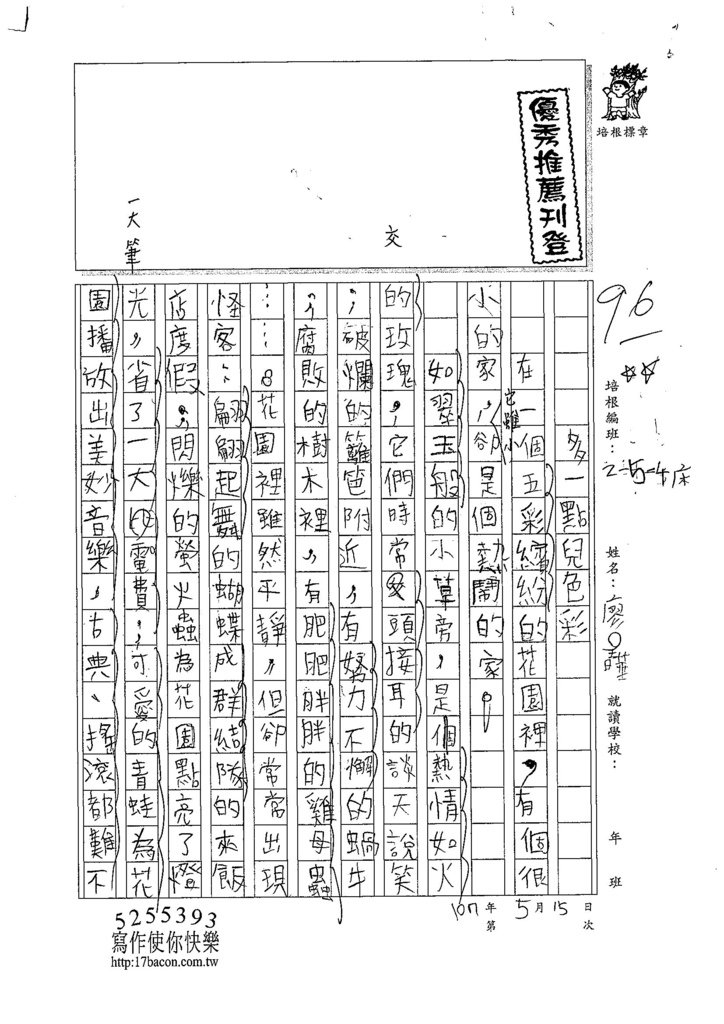 培根標章
優秀推薦刊登
交
一大筆
96
☆☆
培根編班：
姓名：廖○
就讀學校：
年 班
107年5月15日
第 次
多一點兒色彩
在一個五彩繽紛的花園裡，有個很
小的家，它雖小卻是個熱鬧的家。
如翠玉般的小草旁，是個熱情如火
的玫瑰，它們時常交頭接耳的談天說笑
，破爛的籬笆附近，有努力不懈的蝸牛
，腐敗的樹木裡，有肥肥胖胖的雞母蟲
……。花園裡雖然平靜，但卻常常出現
怪客：翩翩起舞的蝴蝶成群結隊的來飯
店度假，閃爍的螢火蟲為花園點亮了燈
光，省了一大筆電費，可愛的青蛙為花
園播放出美妙音樂，古典、搖滾都難不
5255393
寫作使你快樂
http:17bacon.com.tw